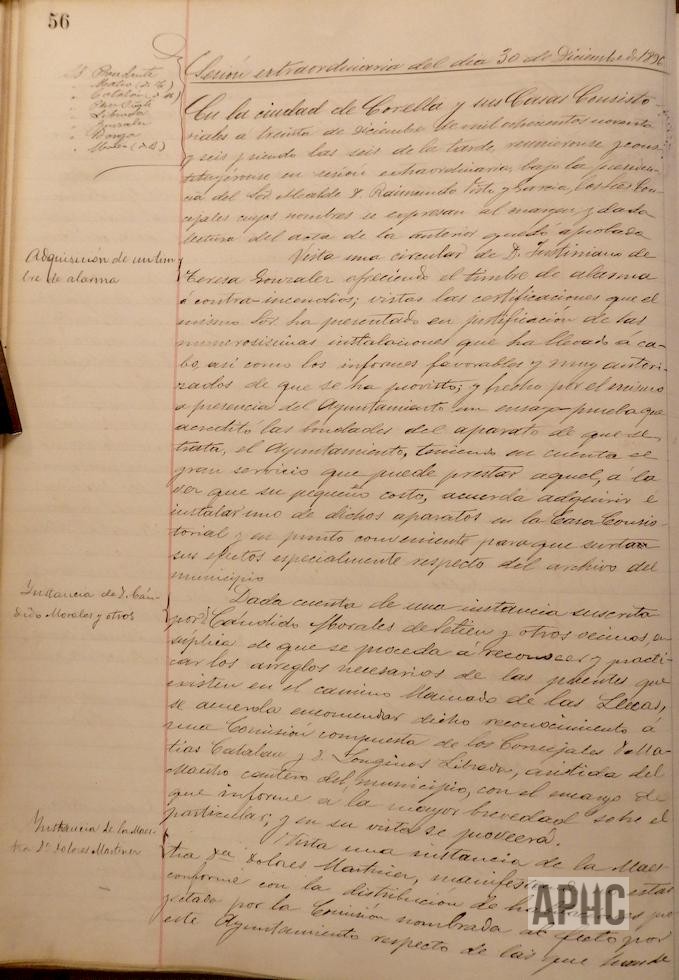 56
Sesión extraordinaria del dia 30 de Diciembre de 1896
Sr. Presidente
" Mateo
" Catalán
" Librada
" González
En la ciudad de Corella y sus Casas Consisto-
riales a treinta de Diciembre de mil ochocientos noventa
y seis y siendo las seis de la tarde, reunieronse y cons-
tituyéronse en sesión extraordinaria, bajo la presiden-
cia del Sor Alcalde D. Raimundo y Garcia, los Sres Con-
cejales cuyos nombres se expresan al margen y dada
lectura del acta de la anterior quedó aprobada
Adquisición de un tim
bre de alarma
Vista una circular de D. Justiniano de
Teresa Gonzalez ofreciendo el timbre de alarma
ó contra-incendios; vistas las certificaciones que el
mismo Sor. ha presentado en justificación de las
numerosisimas instalaciones que ha llevado á ca-
bo, asi como los informes favorables y muy autori-
zados de que se ha provisto; y hecho por el mismo
a presencia del Ayuntamiento un ensayo-prueba que
acreditó las bondades del aparato de que se
trata, el Ayuntamiento, teniendo en cuenta el
gran servicio que puede prestar aquel, á la
vez que su pequeño costo, acuerda adquirir é
instalar uno de dichos aparatos en la Casa Consis-
torial y en punto conveniente para que surtan
sus efectos especialmente respecto del archivo del
municipio
Instancia de D. Cán-
dido Morales y otros
Dada cuenta de una instancia suscrita
por D. Cándido Morales de Setien y otros vecinos, en
suplica de que se proceda á reconocer y practi-
car los arreglos necesarios de las puentes que
existen en el camino llamado de las
se acuerda encomendar dicho reconocimiento á
una Comisión compuesta de los Concejales D. Ma-
tias Catalan y D. Longinos Librada, asistida del
Maestro cantero del municipio, con el encargo de
que informe á la mayor brevedad sobre el
particular; y en su vista se proveerá.
Instancia de la Maes-
tra Da. Dolores Martinez
Vista una instancia de la Maes-
tra Da. Dolores Martinez, manifestando estar
conforme con la distribución de
por la Comisión nombrada al efecto por
este Ayuntamiento respecto de las que
APHC